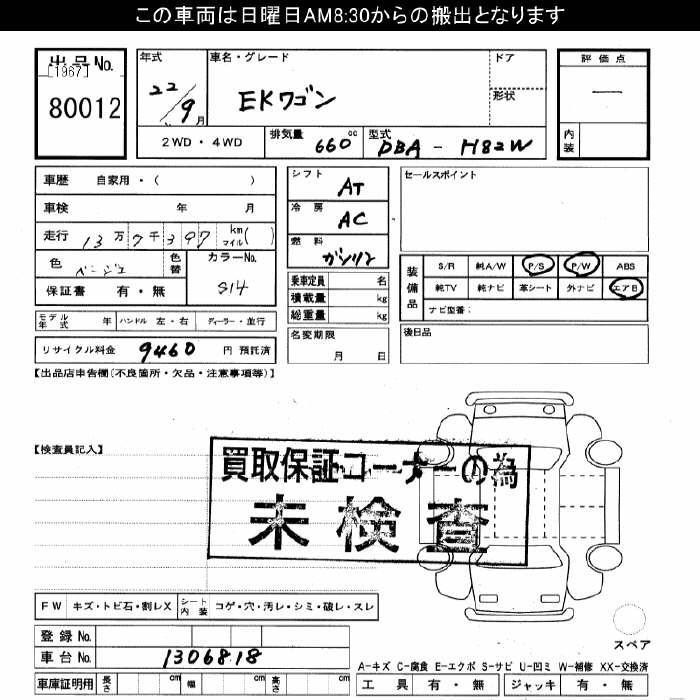 この車両は日曜日AM8:30からの搬出となります
出品No.
[1967]
80012
年式
22/9月
車名・グレード
EKワゴン
ドア
形状
評価点
―
内装
2WD・4WD
排気量
660cc
型式
DBA-H82W
車歴 自家用・( )
車検 年 月
走行 13万7千397 km マイル( )
色 ベージュ 色替
カラーNo.
S14
保証書 有・無
シフト
AT
冷房
AC
燃料
ガソリン
乗車定員 名
積載量 kg
総重量 kg
セールスポイント
装備品
S/R 純A/W P/S P/W ABS
純TV 純ナビ 革シート 外ナビ エアB
ナビ型番:
モデル年式 年 ハンドル 左・右 ディーラー・並行
名変期限
月 日
後日品
リサイクル料金 9460 円 預託済
【出品店申告欄(不良箇所・欠品・注意事項等)】
【検査員記入】
買取保証コーナーの為
未検査
FW キズ・トビ石・割レX シート内装 コゲ・穴・汚レ・シミ・破レ・スレ
スペア
登録No.
車台No. 1306818
A-キズ C-腐食 E-エクボ S-サビ U-凹ミ W-補修 XX-交換済
車庫証明用 長さ cm 幅 cm 高さ cm
工具 有・無 ジャッキ 有・無